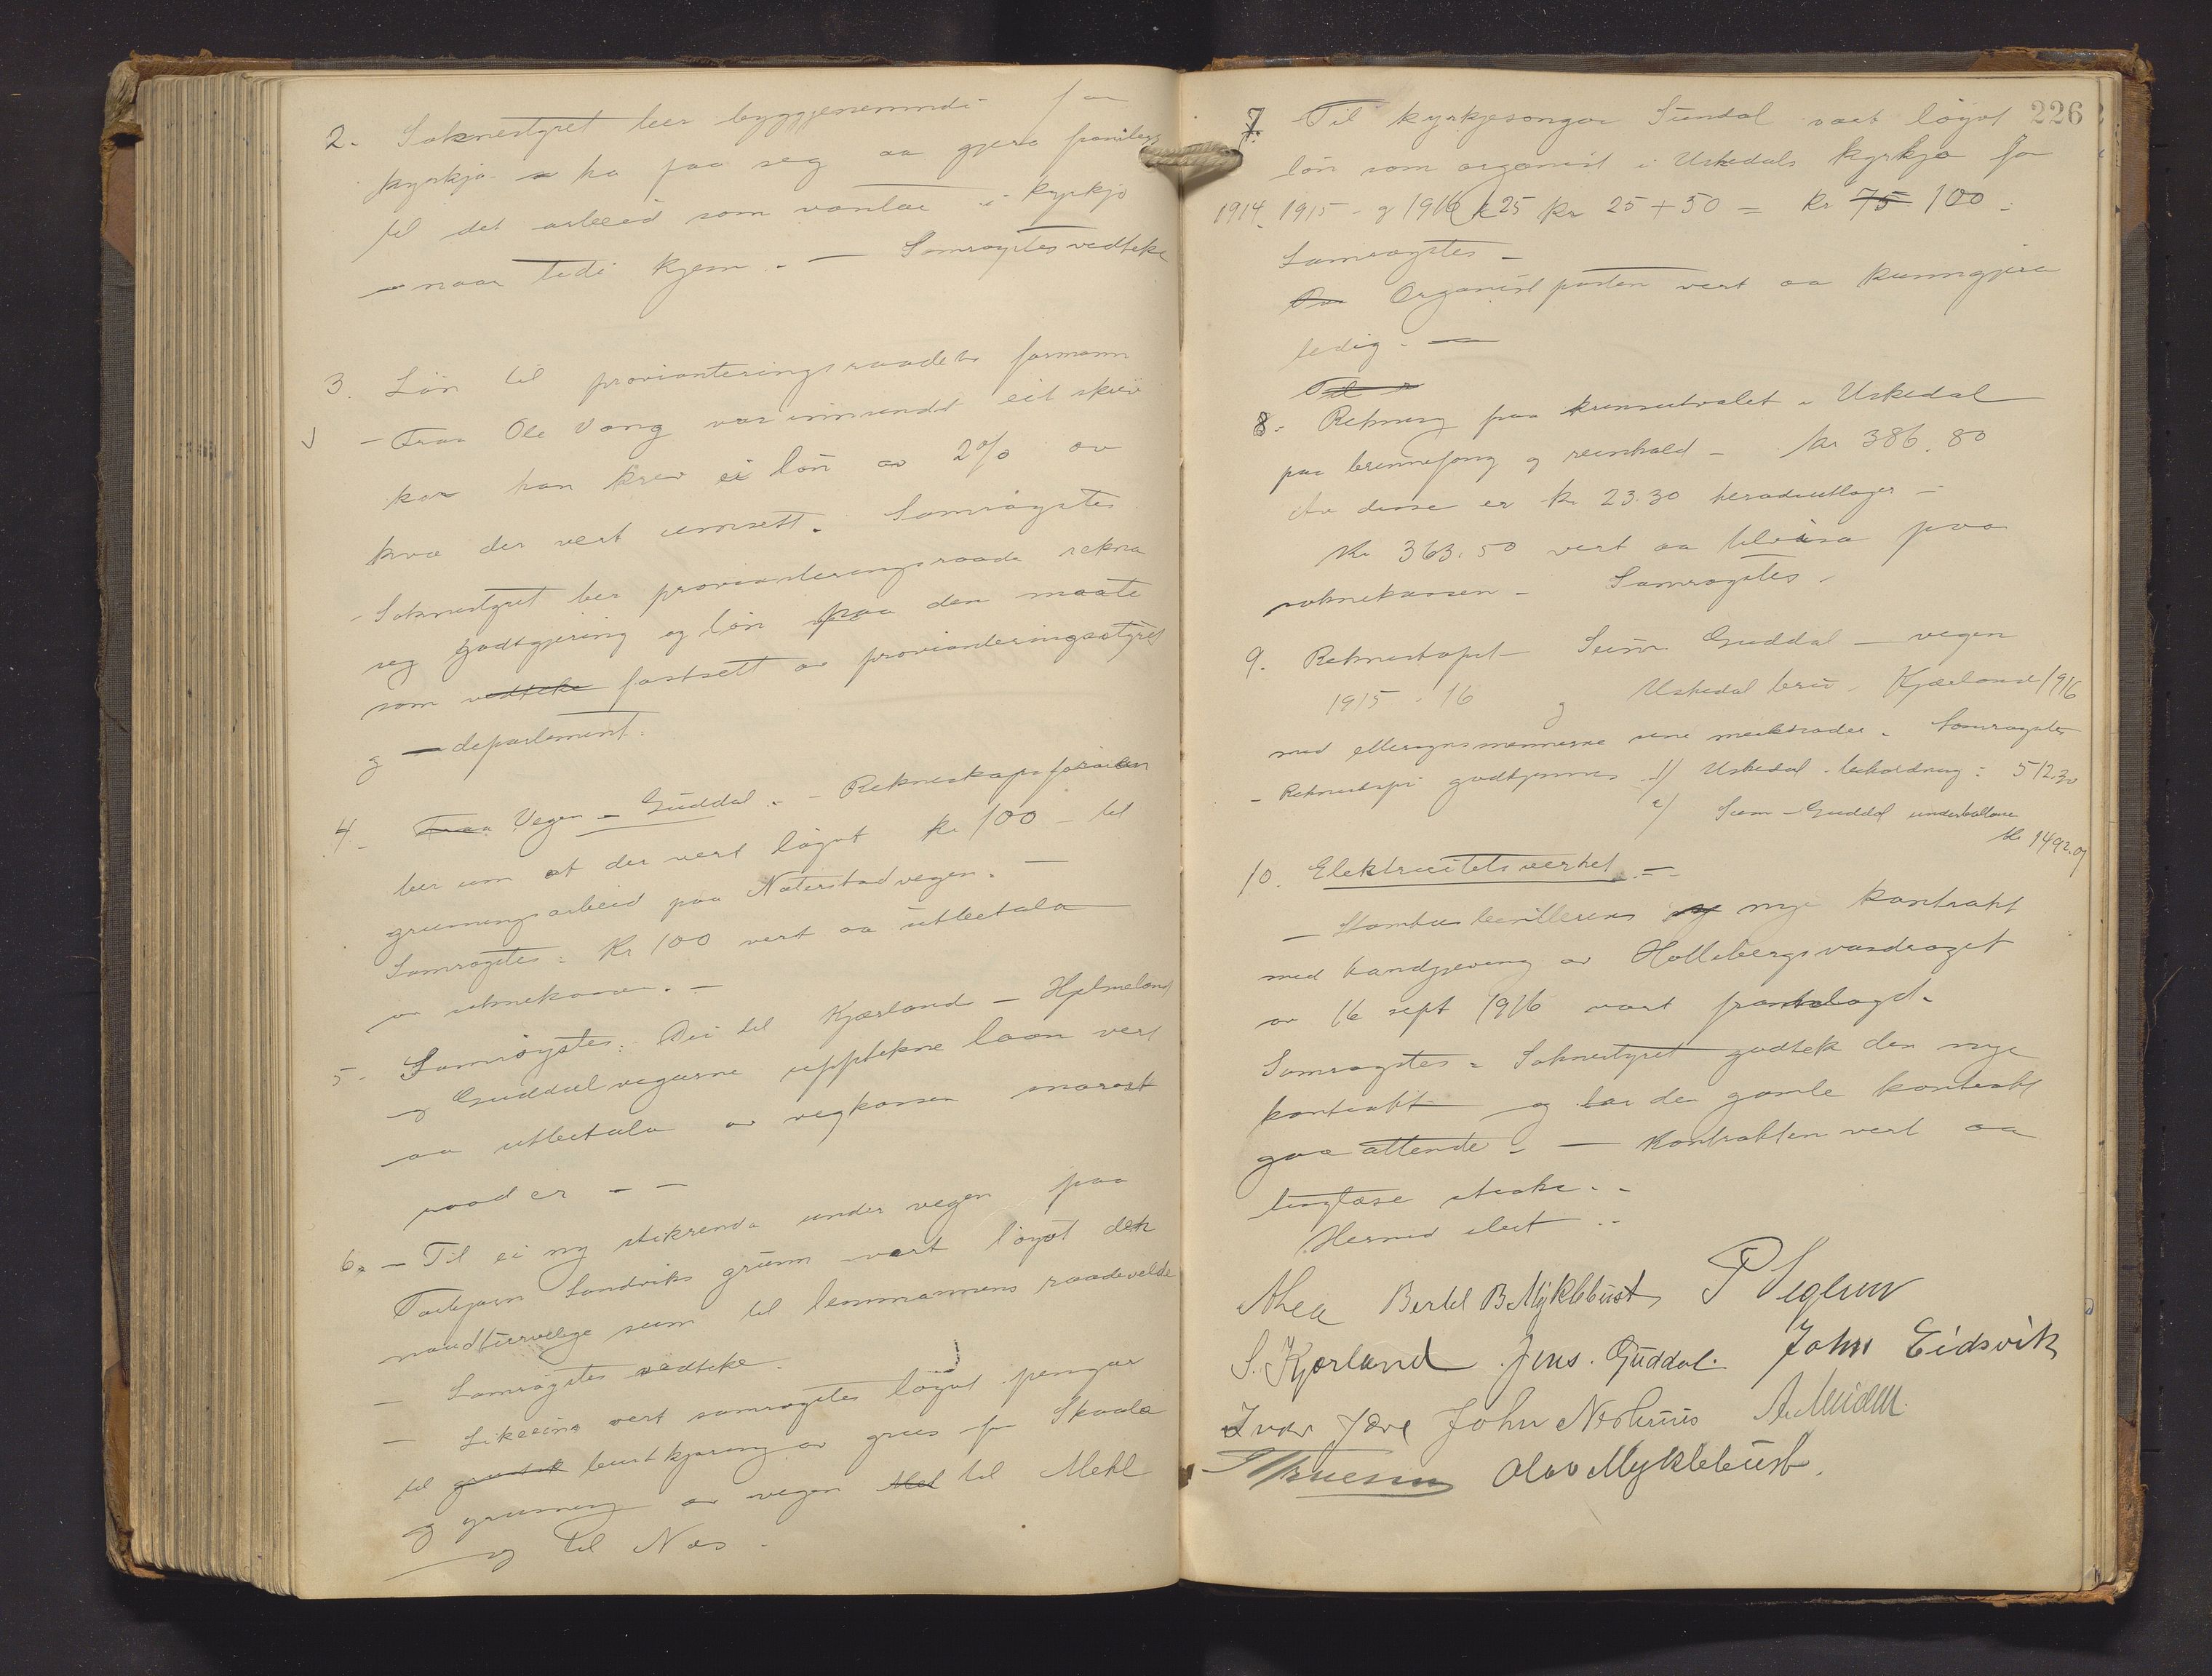 2. Soknestyret beer byggjenemndi for
kyrkja ha paa seg aa gjera framlegg
til det arbeid som vantar i kyrkjo
naar tidi kjem. — Samrøystes vedteke
3. Løn til provianteringsraadets formann
- Fraa Ole Vang var innsendt eit skriv
kor han krev ei løn av 2% av
kva der vert umsett. Samrøystes
- Soknestyret ber provianteringsraade rekna
seg godtgjering og løn paa den maate
som vedteke fastsett av provianteringsstyret
og — departement.
4. Fraa Vegen - Guddal. - Rekneskapsføraren
ber um at der vert løyvt kr 100 - til
grusningsarbeid paa Naterstadvegen. —
Samrøystes: Kr 100 vert aa utbetala
av soknekassa. -
5. Samrøystes: Dei til Kjærland - Hjelmeland
og Guddalvegarne upptekne laan vert
aa utbetala av vegkassen snarast
raad er - -
6. - Til ei ny stikrenda under vegen paa
Torbjørn Sandviks grunn vert løyvt den
naudturvelege sum til lennsmannens raadevelde
- Samrøystes vedteke.
- Likeeins vert samrøystes løyvt pengar
til burtkjøring av grus fra Skaala
og grusning av vegen til Mehl
og til Nes.
226
7. Til kyrkjesongar Sundal vart løyvt
løn som organist i Uskedals kyrkja for
1914. 1915 - og 1916 kr 25 kr 25 + 50 = kr 75 100 -
Samrøystes -
Organistposten vert aa kunngjera
ledig. —
Til
8. Rekning fraa krinsutvalet i Uskedal
paa brennefang og reinhald - kr 386.80
Av desse er kr 23.30 heradsutlogor -
Kr 363.50 vert aa tilvisa paa
soknekassen - Samrøystes -
9. Rekneskapet Seim Guddal - vegen
1915 - 16 og Uskedal bru - Kjærland 1916
med ettersynsmennerne sine merknader. Samrøystes
- Rekneskapi godkjennes 1) Uskedal - behaldning: 512.30
2) Seim - Guddal underballanse
kr 1492.07
10. Elektricitetsverket. -
- nye kontrakt
med handgeving av Hollebergsvasdraget
av 16 sept 1916 vart framlagd.
Samrøystes - Soknestyret godtek den nye
kontrakt og lar den gamle kontrakt
gaa attende. - Kontrakten vert aa
tinglese straks. -
Hermed slut -
Bertel B Myklebust P Seglem
S. Kjærland Jens. Guddal. John Eidsvik
Ivar John Nerhuus
Olav Myklebust.